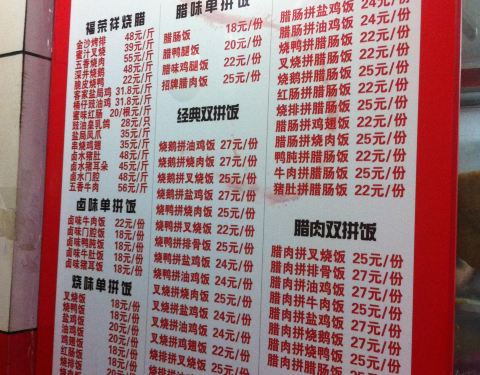 福荣祥烧腊
金沙烤排 48元/斤
蜜汁叉烧 39元/斤
五香烧肉 55元/斤
深井烧鹅 48元/斤
脆皮烧鸭 22元/斤
客家盐局鸡 31.8元/斤
桶仔豉油鸡 31.8元/斤
蜜味红肠 20/根元/斤
豉油皇乳鸽 28元/只
盐局凤爪 35元/斤
串烧鸡翅 35元/斤
卤水猪肚 48元/斤
卤水猪耳朵 45元/斤
卤水门腔 48元/斤
五香牛肉 56元/斤
卤味单拼饭
卤味牛肉饭 22元/份
卤味门腔饭 18元/份
卤味鸭肫饭 18元/份
卤味牛肚饭 18元/份
卤味猪耳饭 18元/份
烧味单拼饭
叉烧饭 18元/份
烧鸭饭 18元/份
盐鸡饭 20元/份
油鸡饭 20元/份
鸡翅饭 20元/份
红肠饭 18元/份
烧排饭 18元/份
腊味单拼饭
腊肠饭 18元/份
腊鸭腿饭 20元/份
腊味鸡腿饭 22元/份
招牌腊肉饭 25元/份
经典双拼饭
烧鹅拼油鸡饭 27元/份
烧鹅拼烧肉饭 26元/份
烧鹅拼叉烧饭 25元/份
烧鹅拼盐鸡饭 27元/份
烧鸭拼烧肉饭 25元/份
烧鸭拼排骨饭 25元/份
烧鸭拼盐鸡饭 24元/份
烧鸭拼油鸡饭 24元/份
叉烧拼烧肉饭 25元/份
叉烧拼盐鸡饭 24元/份
叉烧拼油鸡饭 24元/份
叉烧拼烧鸭饭 22元/份
烧排拼叉烧饭 25元/份
腊肠拼盐鸡饭 24元/份
腊肠拼油鸡饭 24元/份
烧鸭拼腊肠饭 22元/份
叉烧拼腊肠饭 22元/份
烧鹅拼腊肠饭 25元/份
红肠拼腊肠饭 22元/份
烧排拼腊肠饭 25元/份
腊肠拼鸡翅饭 22元/份
鸭肫拼腊肠饭 22元/份
牛肉拼腊肠饭 25元/份
猪肚拼腊肠饭 22元/份
腊肉双拼饭
腊肉拼叉烧饭 25元/份
腊肉拼排骨饭 27元/份
腊肉拼油鸡饭 25元/份
腊肉拼牛肉饭 25元/份
腊肉拼盐鸡饭 25元/份
腊肉拼烧鹅饭 27元/份
腊肉拼烧鸭饭 25元/份